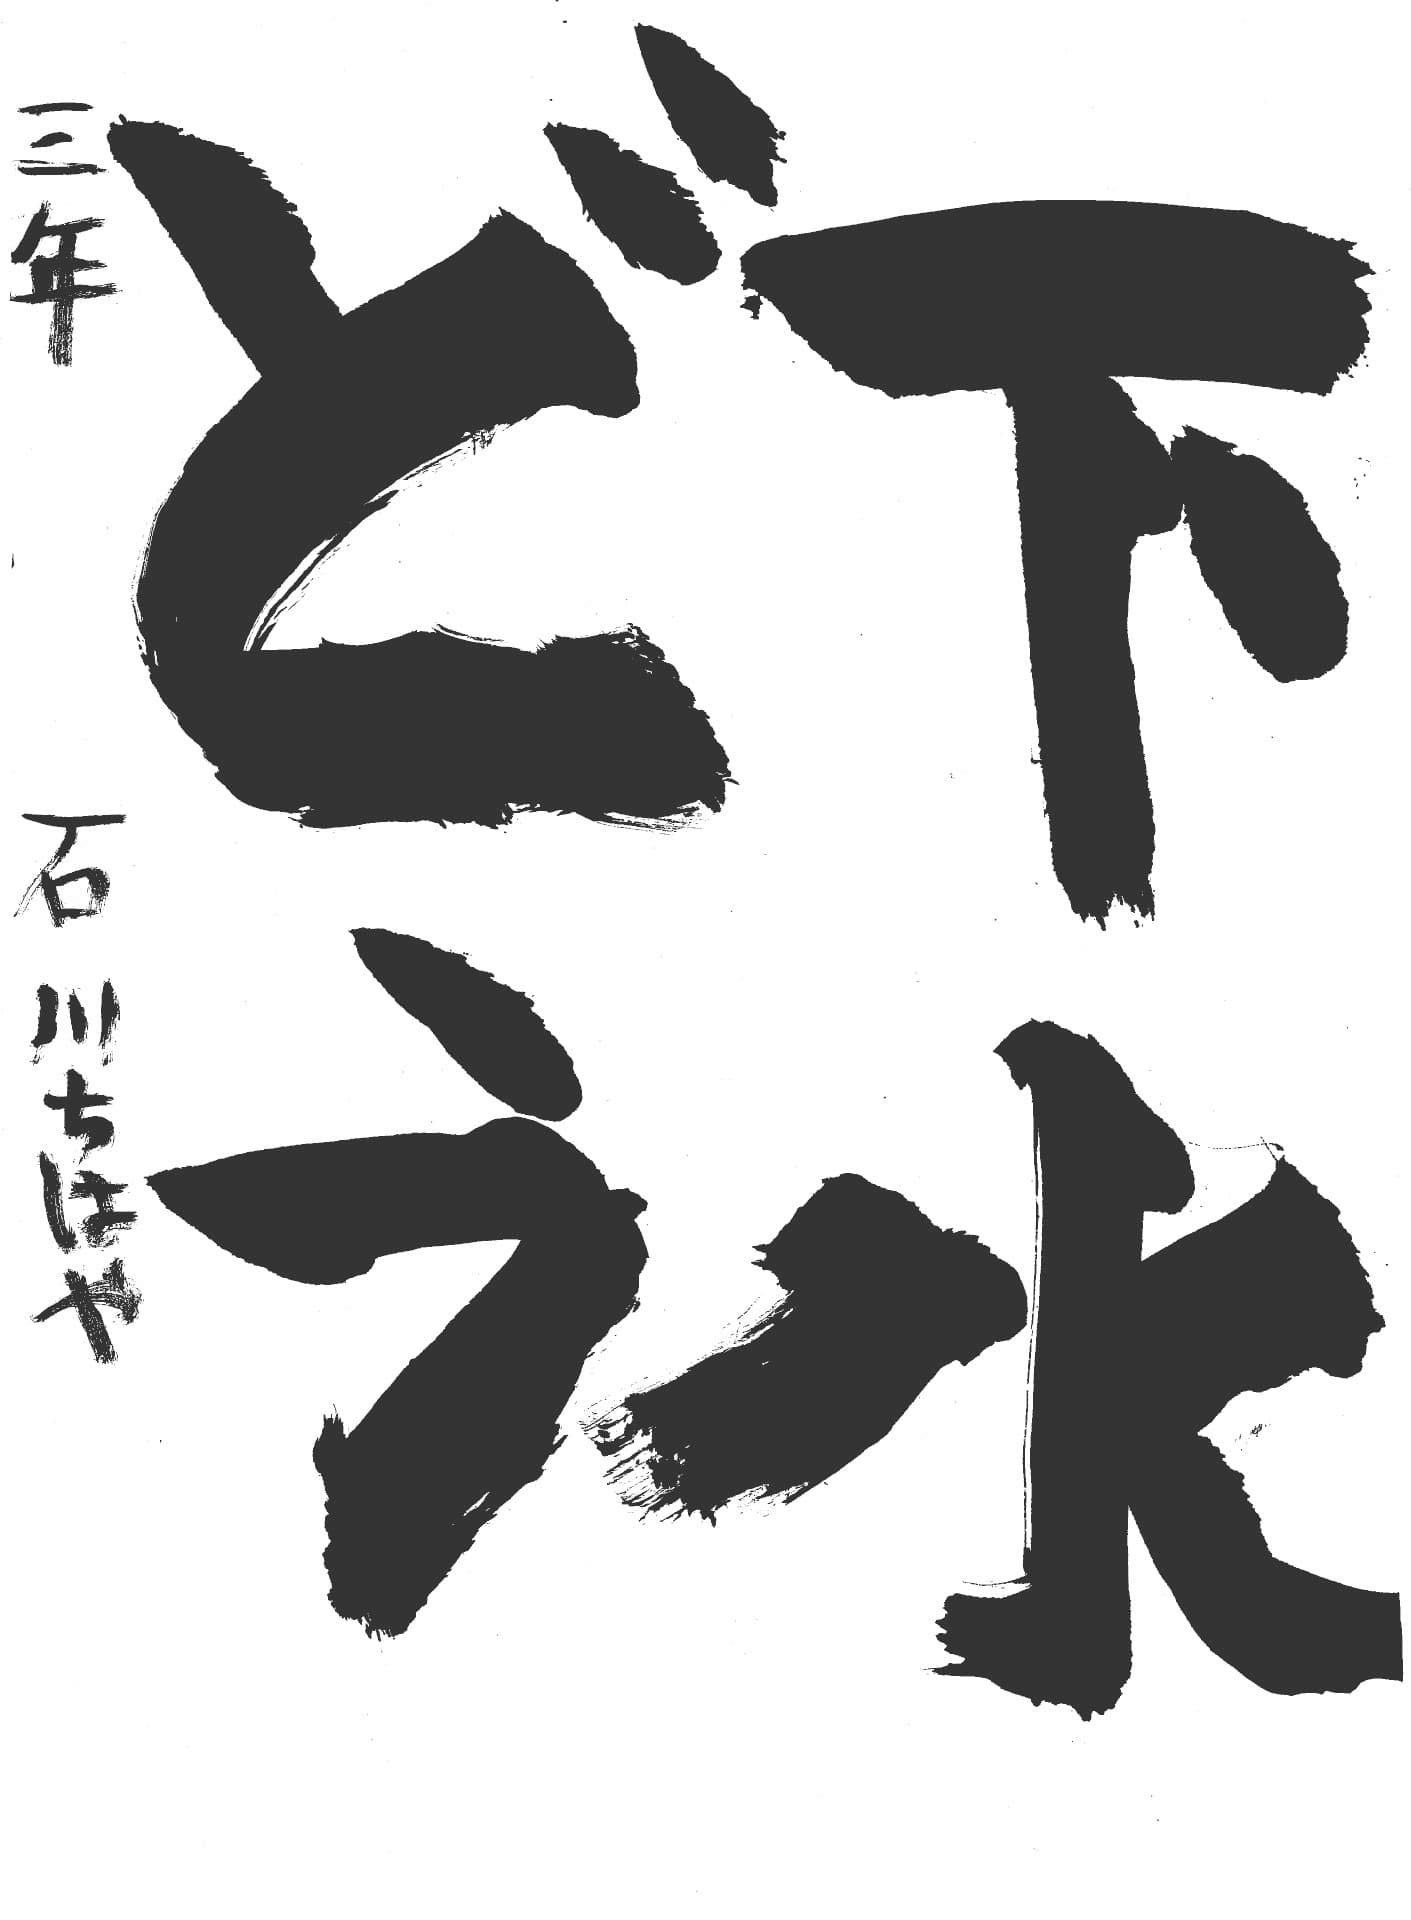 下水
どう
三年 石川ちはや